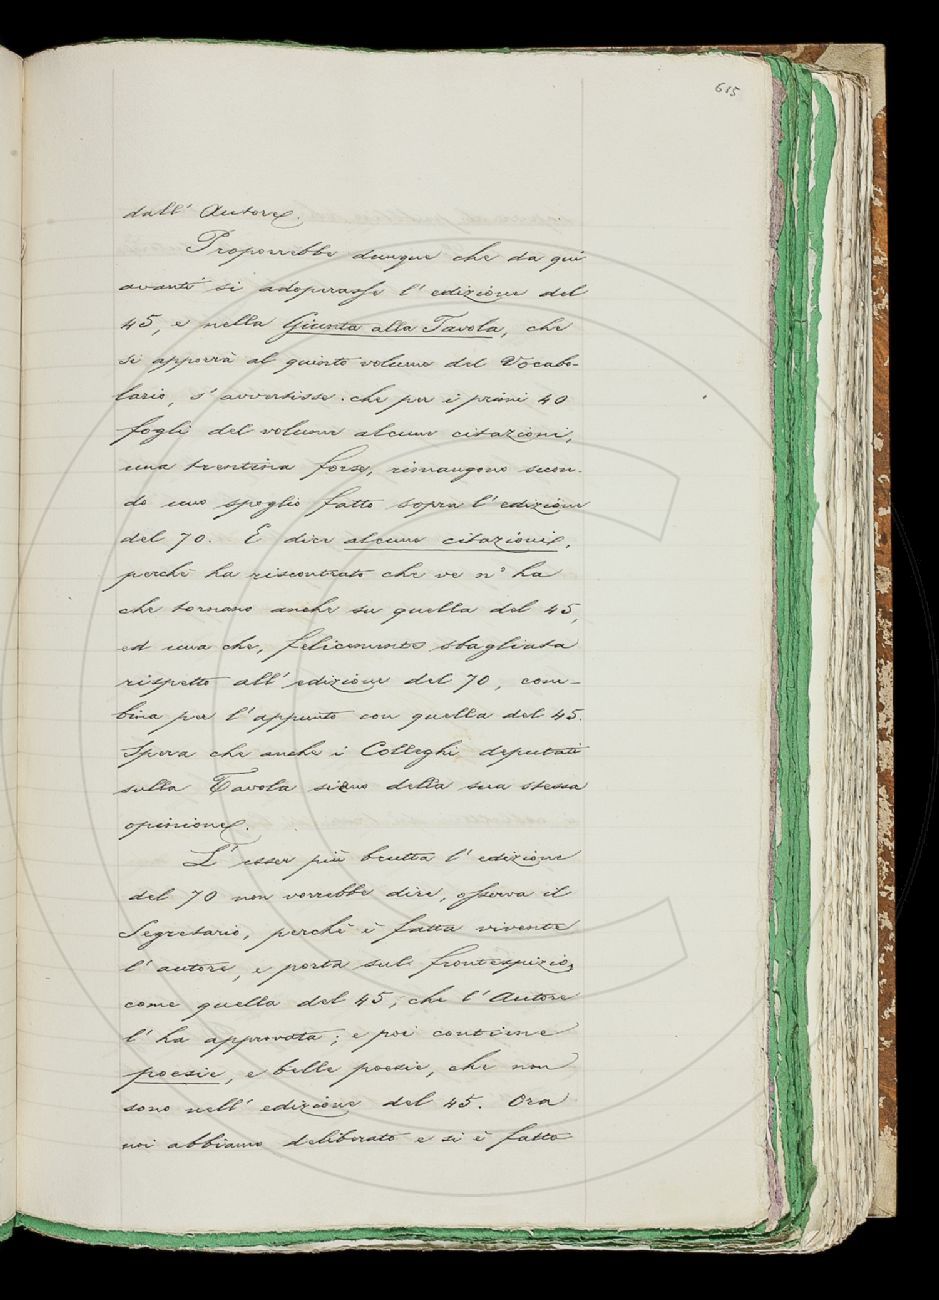 615
dall' Autore.
Proporrebbe dunque che da qui
avanti si adoperasse l' edizione del
45, e nella Giunta alla Tavola, che
si apporrà al quinto volume del Vocabo-
lario, s' avvertisse che per i primi 40
fogli del volume alcune citazioni,
una trentina forse, rimangono secon-
do uno spoglio fatto sopra l' edizione
del 70. E dice alcune citazioni,
perché ha riscontrato che ve n' ha
che tornano anche su quella del 45,
ed una che, felicemente sbagliata
rispetto all' edizione del 70, com-
bina per l' appunto con quella del 45.
Spera che anche i Colleghi deputati
sulla Tavola sieno della sua stessa
opinione.
L' esser più brutta l' edizione
del 70 non vorrebbe dire, osserva il
Segretario, perchè è fatta vivente
l' autore, e porta sul frontespizio,
come quella del 45, che l' Autore
l' ha approvata; e poi contiene
poesie, e belle poesie, che non
sono nell' edizione del 45. Ora
noi abbiamo deliberato e si è fatto